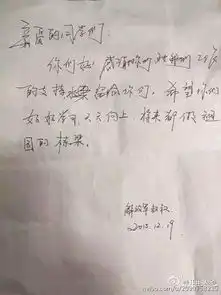 亲爱的同学们
你们好! 感谢你们
的支持 给你们. 希望你们
好好学习 天天向上, 将来都做祖
国的栋梁。
解放军叔叔
2015.12.19